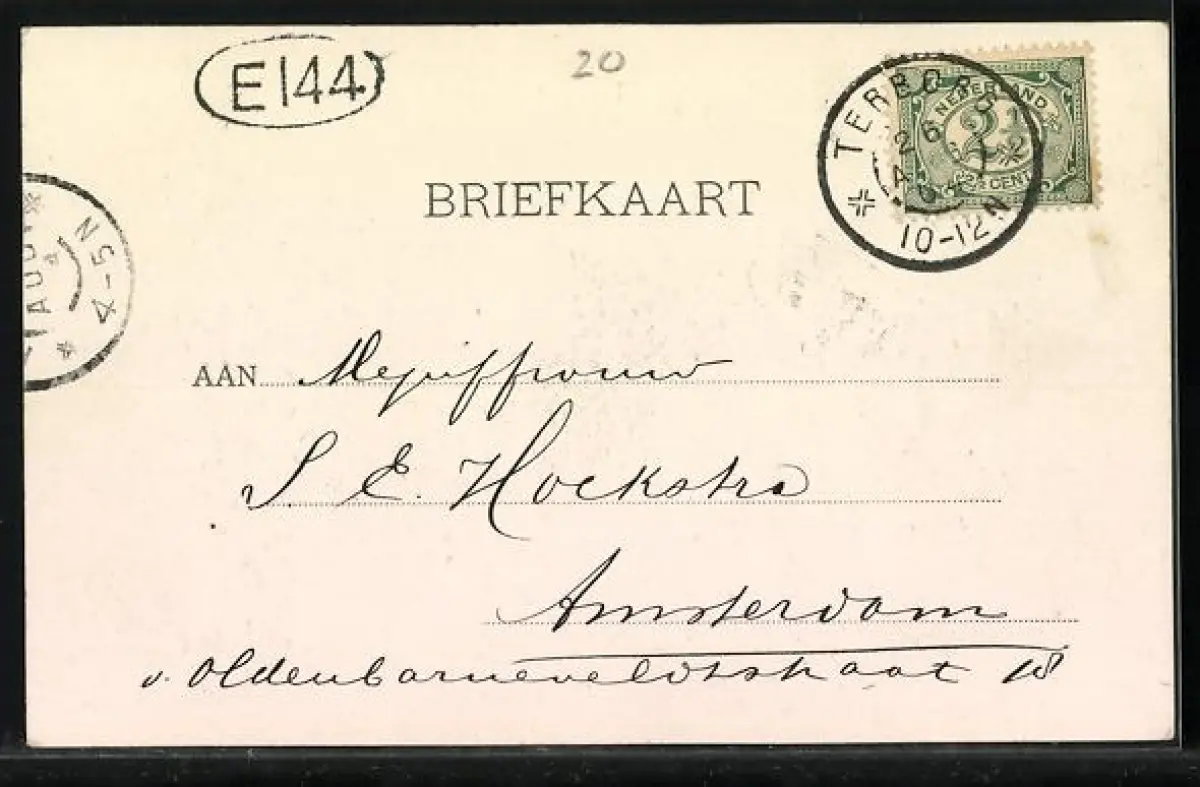 E 144.
20
TERBORG
26
10-12N
NEDERLAND
2 1/2
2 1/2 CENT
BRIEFKAART
4-5N
AAN Mejuffrouw
S. E. Hoekstra
Amsterdam
v. Oldenbarneveldtstraat 18